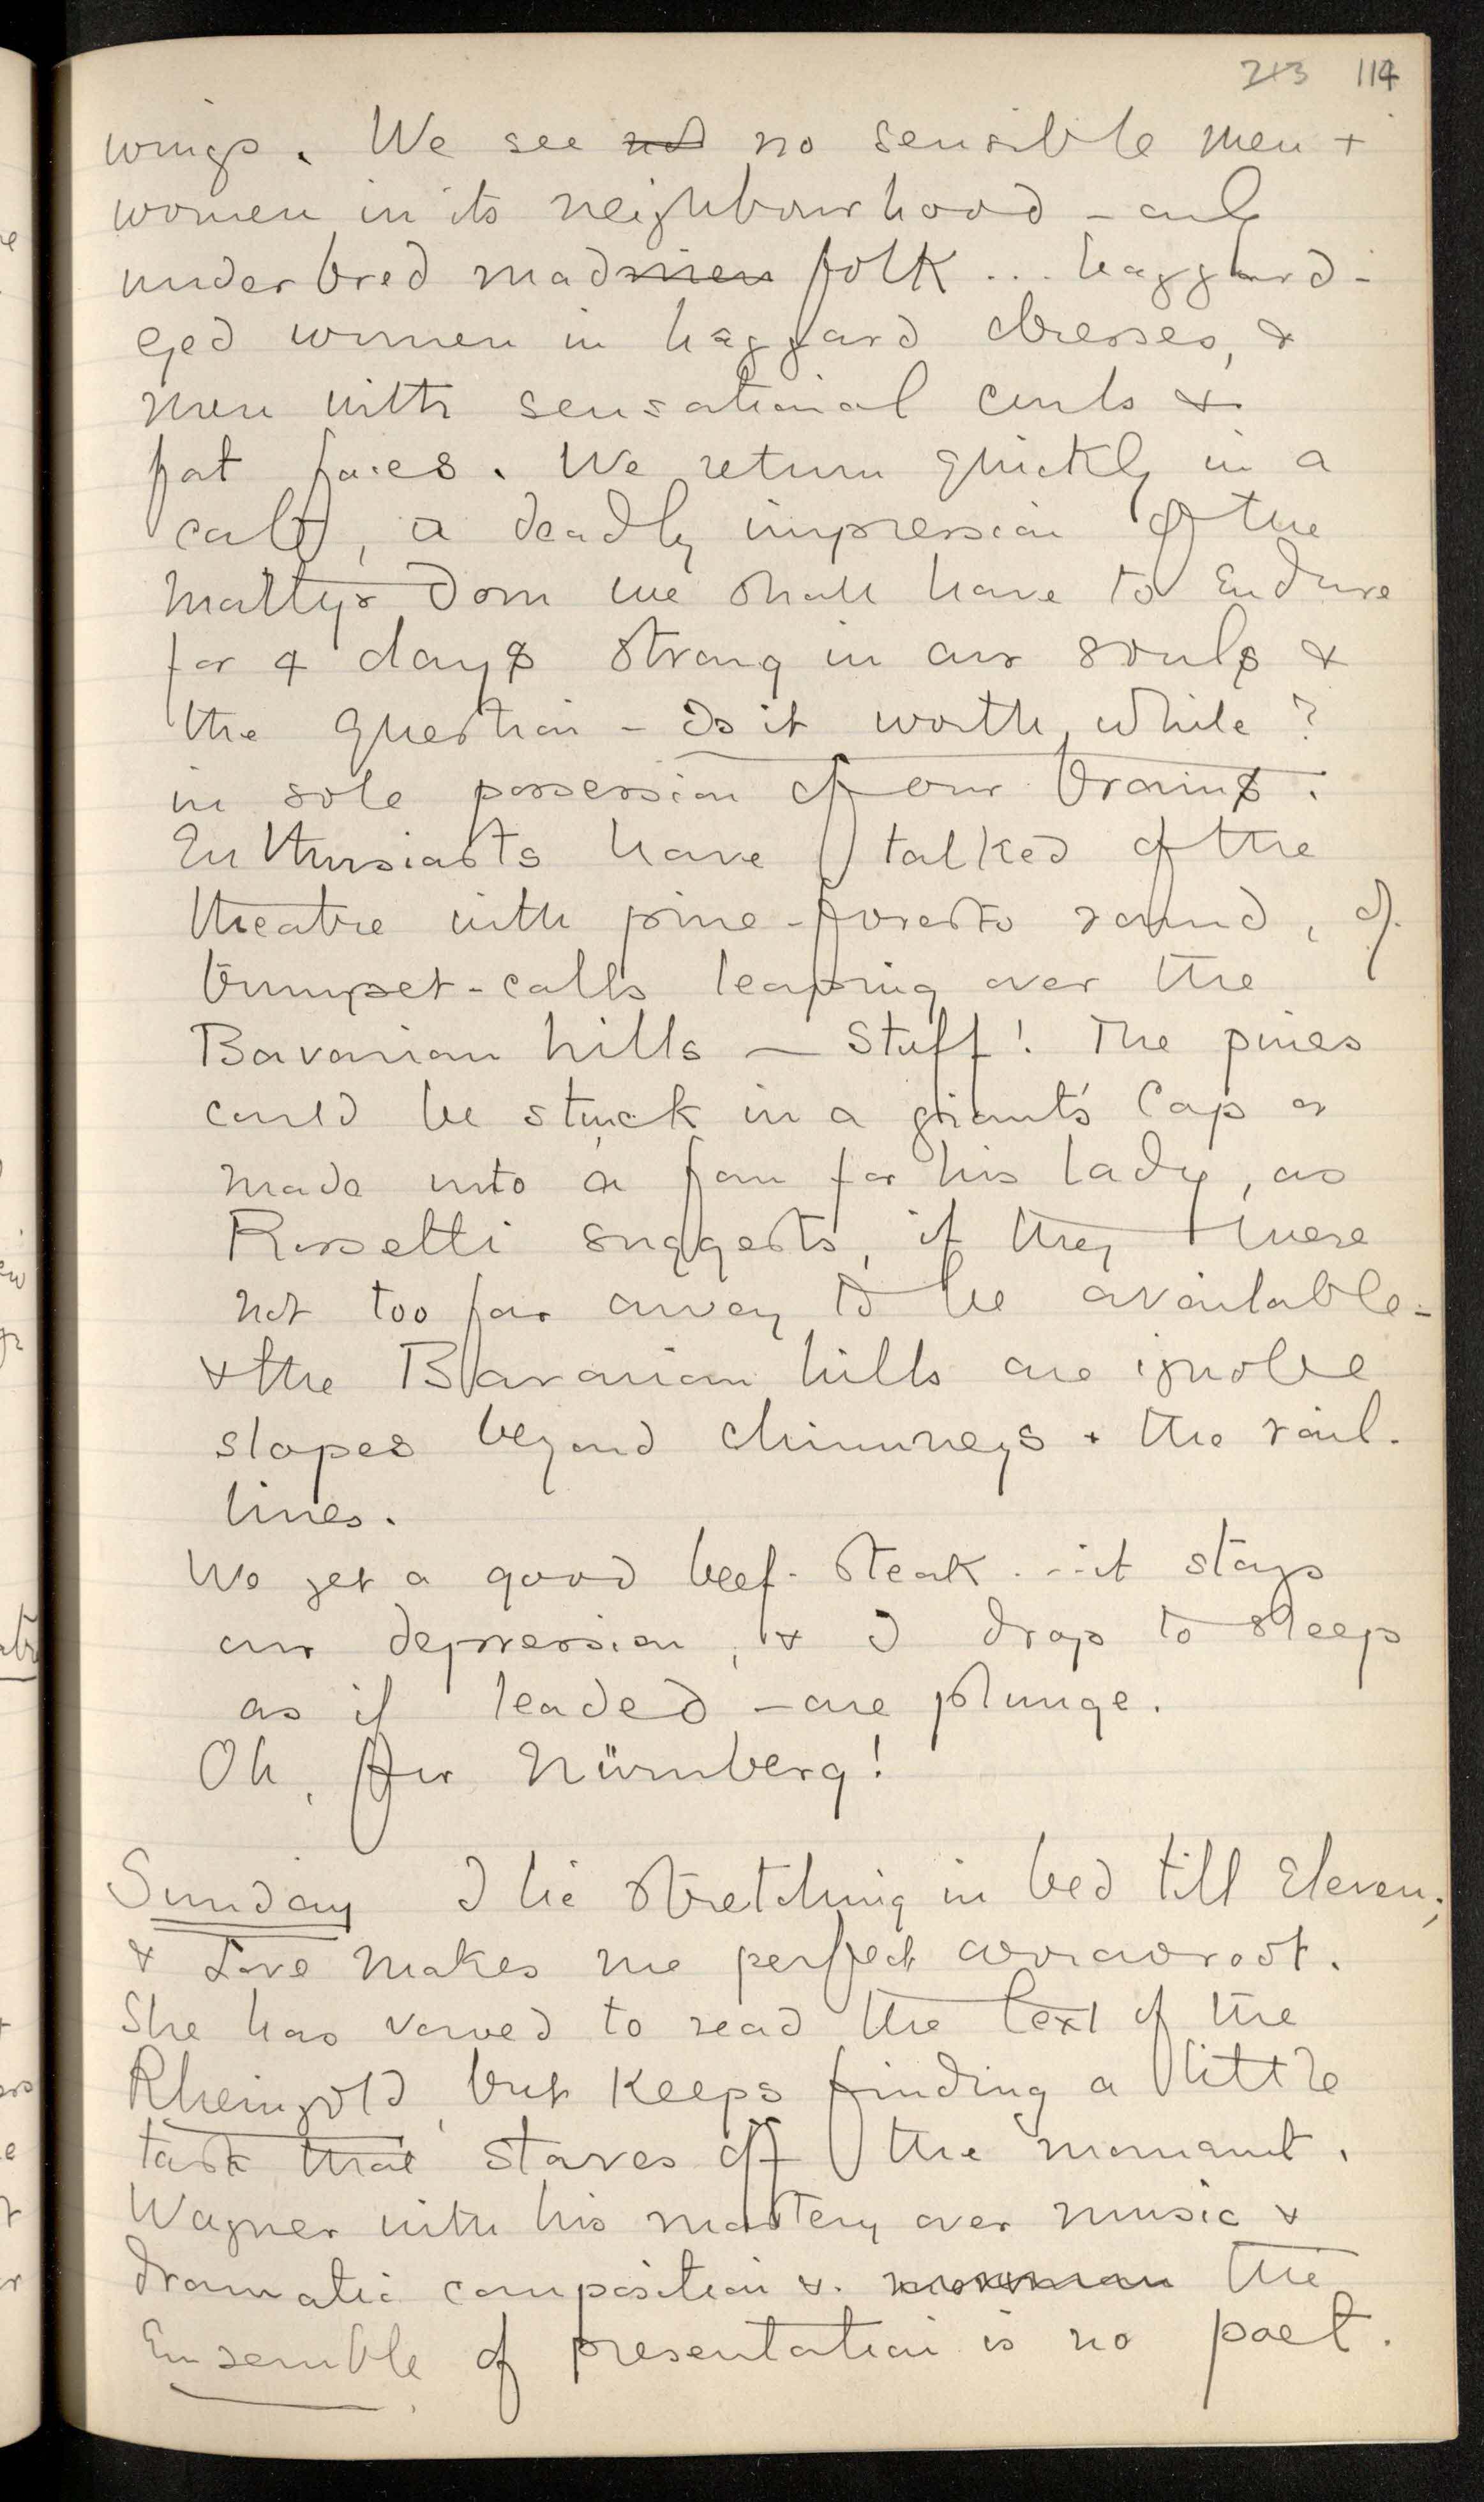 213 114
wings. We see not no sensible men +
women in its neighbourhood – only
underbred madmen folk ... haggard-
eyed women in haggard dresses, &
men with sensational curls &
fat faces. We return quickly in a
cab, a deadly impression of the
martyrdom we shall have to endure
for 4 days strong in our souls &
the question – Is it worth while?
in sole possession of our brains.
Enthusiasts have talked of the
theatre with pine-forests round, of
trumpet-calls leaping over the
Bavarian hills — Stuff! The pines
could be stuck in a giant's cap or
made into a fan for his lady, as
Rossetti suggests, if they were
not too far away to be available –
& the Bavarian hills are ignoble
slopes beyond chimneys + the rail-
lines.
We get a good beef-steak ... it stays
our depression, & I drop to sleep
as if leaded – one plunge.
Oh, for Nürnberg!
Sunday I lie stretching in bed till Eleven;
& Love makes me perfect arrowroot.
She has vowed to read the text of the
Rheingold, but keeps finding a little
task that staves off the moment.
Wagner with his mastery over music &
dramatic composition & the
Ensemble of presentation is no poet.